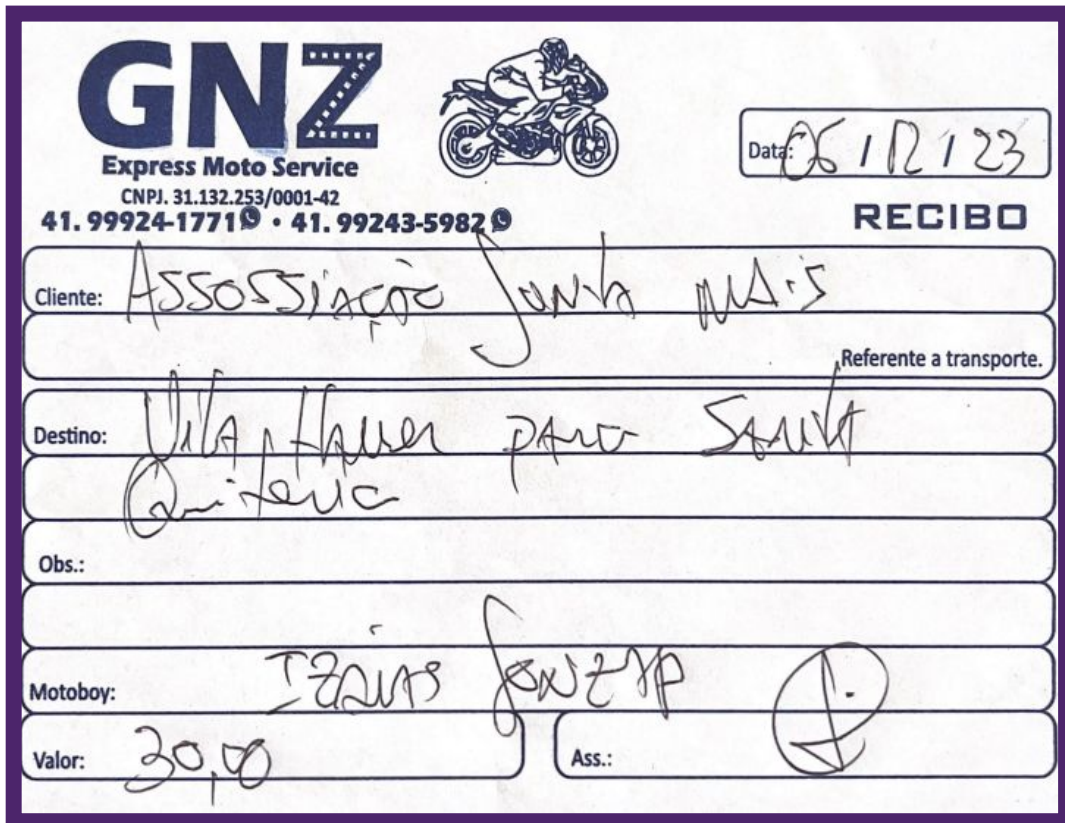 GNZ
Express Moto Service
CNPJ. 31.132.253/0001-42
41. 99924-1771 • 41. 99243-5982
Data: 06 / 12 / 23
RECIBO
Cliente: Assossiação Junta mais
Referente a transporte.
Destino: Vila Hauer para Santa
Quiteria
Obs.:
Motoboy: Izaias
Valor: 30,00
Ass.: